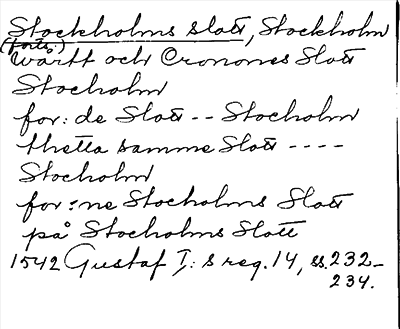 Stockholms slott, Stockholm
(forts.)
wårtt och Cronones Slott
Stocholm
for: de Slott -- Stocholm
thetta samme Slott ----
Stocholm
for:ne Stocholms Slott
på Stocholms Slott
1542 Gustaf I:s reg. 14, ss. 232-
234.